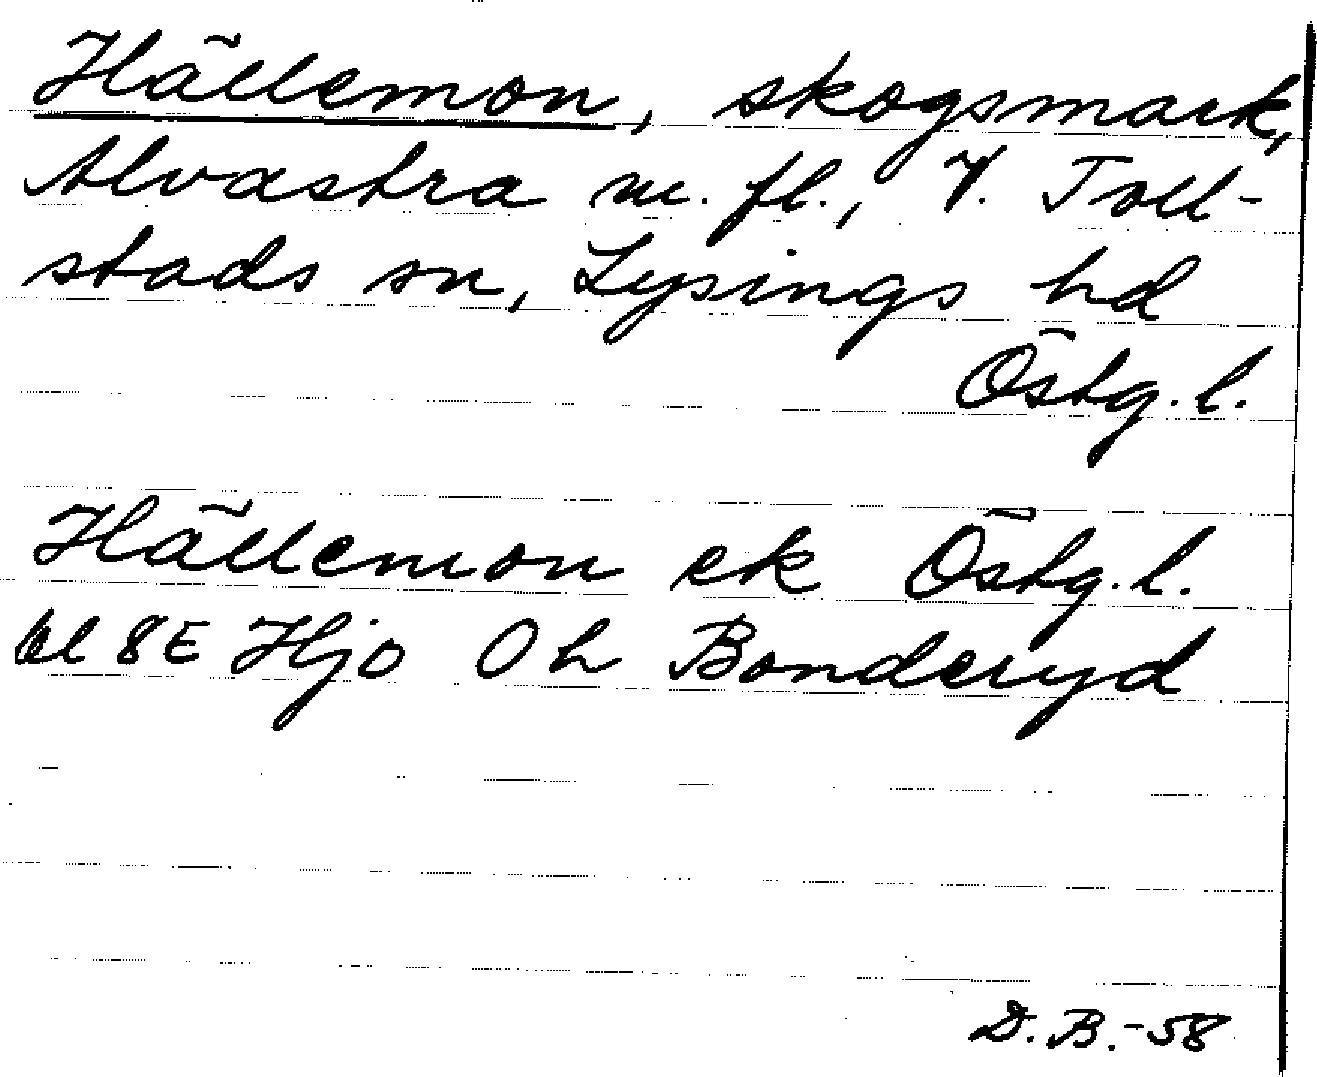 Hällemon, skogsmark,
Alvastra m. fl., V. Toll-
stads sn, Lysings hd
Östg. l.
Hällemon ek Östg. l.
bl 8E Hjo Oh Bonderyd
D. B. -58